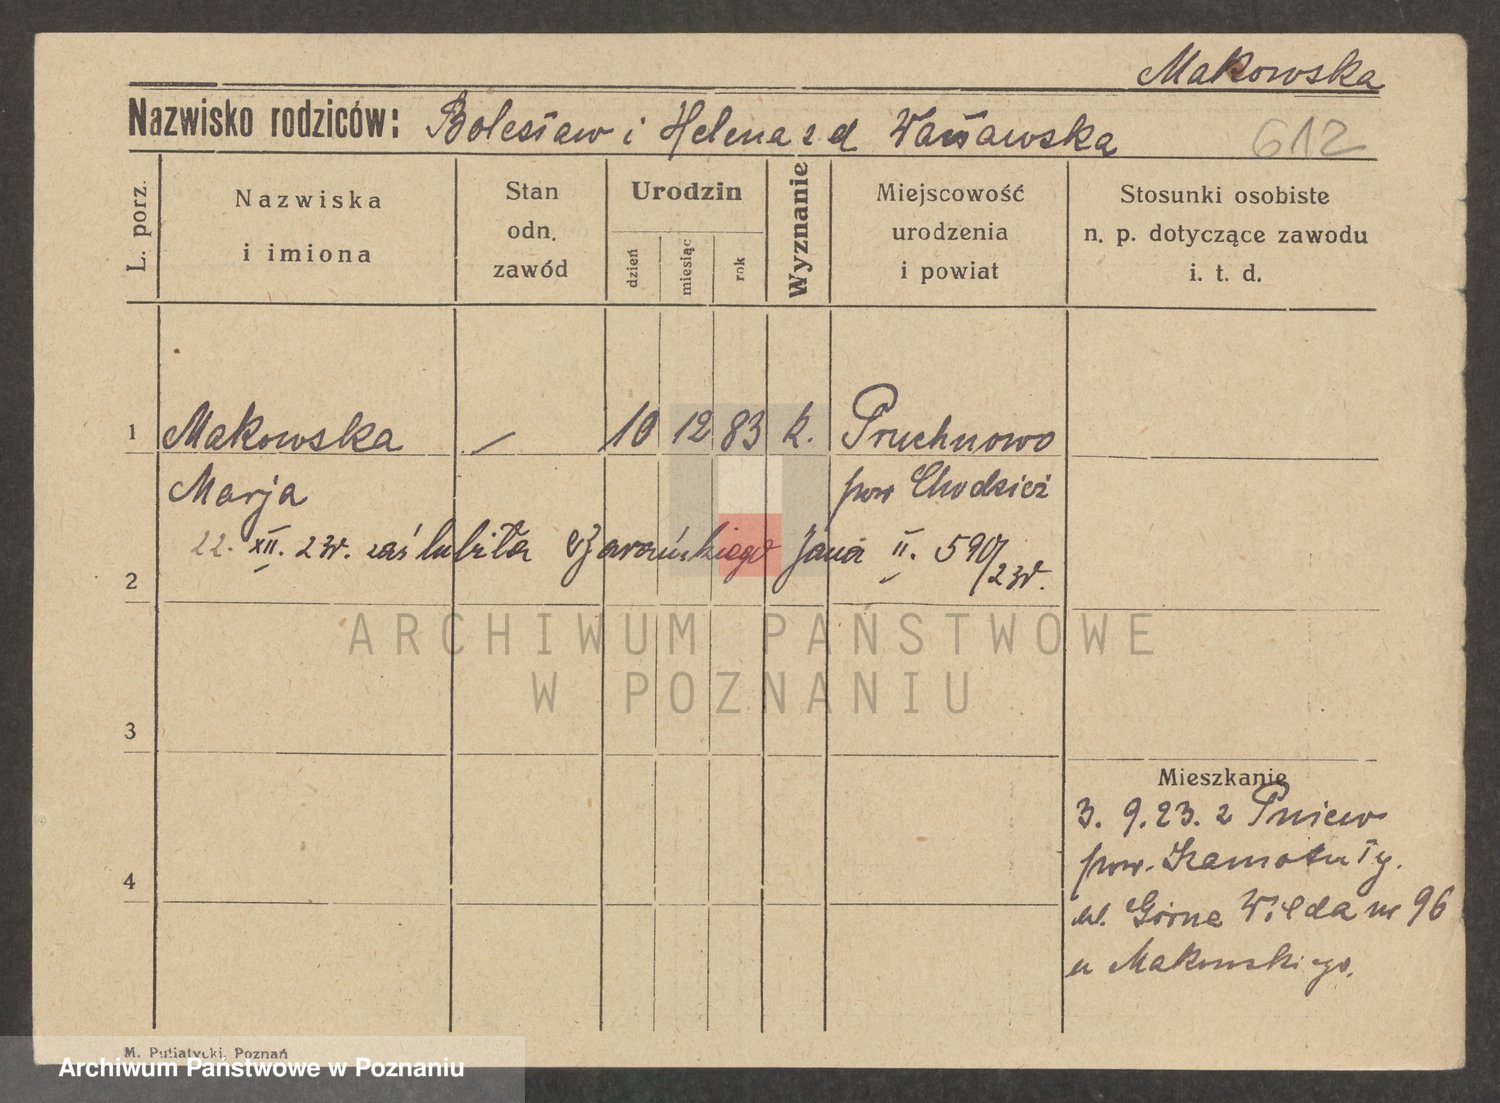 Makowska
Nazwisko rodziców: Bolesław i Helena z d Warsawska
612
L. porz.
Nazwiska
i imiona
Stan
odn.
zawód
Urodzin
dzień
miesiąc
rok
Wyznanie
Miejscowość
urodzenia
i powiat
Stosunki osobiste
n. p. dotyczące zawodu
i. t. d.
1 Makowska — 10 12 83 k. Pruchnowo
Marja pow Chodzież
22. XII. 23r. zaślubiła Jana II. 590/23r.
2
ARCHIWUM PAŃSTWOWE
W POZNANIU
3
Mieszkanie
3. 9. 23. z Pniew
pow. Szamotuły.
ul. Górna Wilda nr 96
u Makowskiego.
4
M. Putiatycki, Poznań
Archiwum Państwowe w Poznaniu